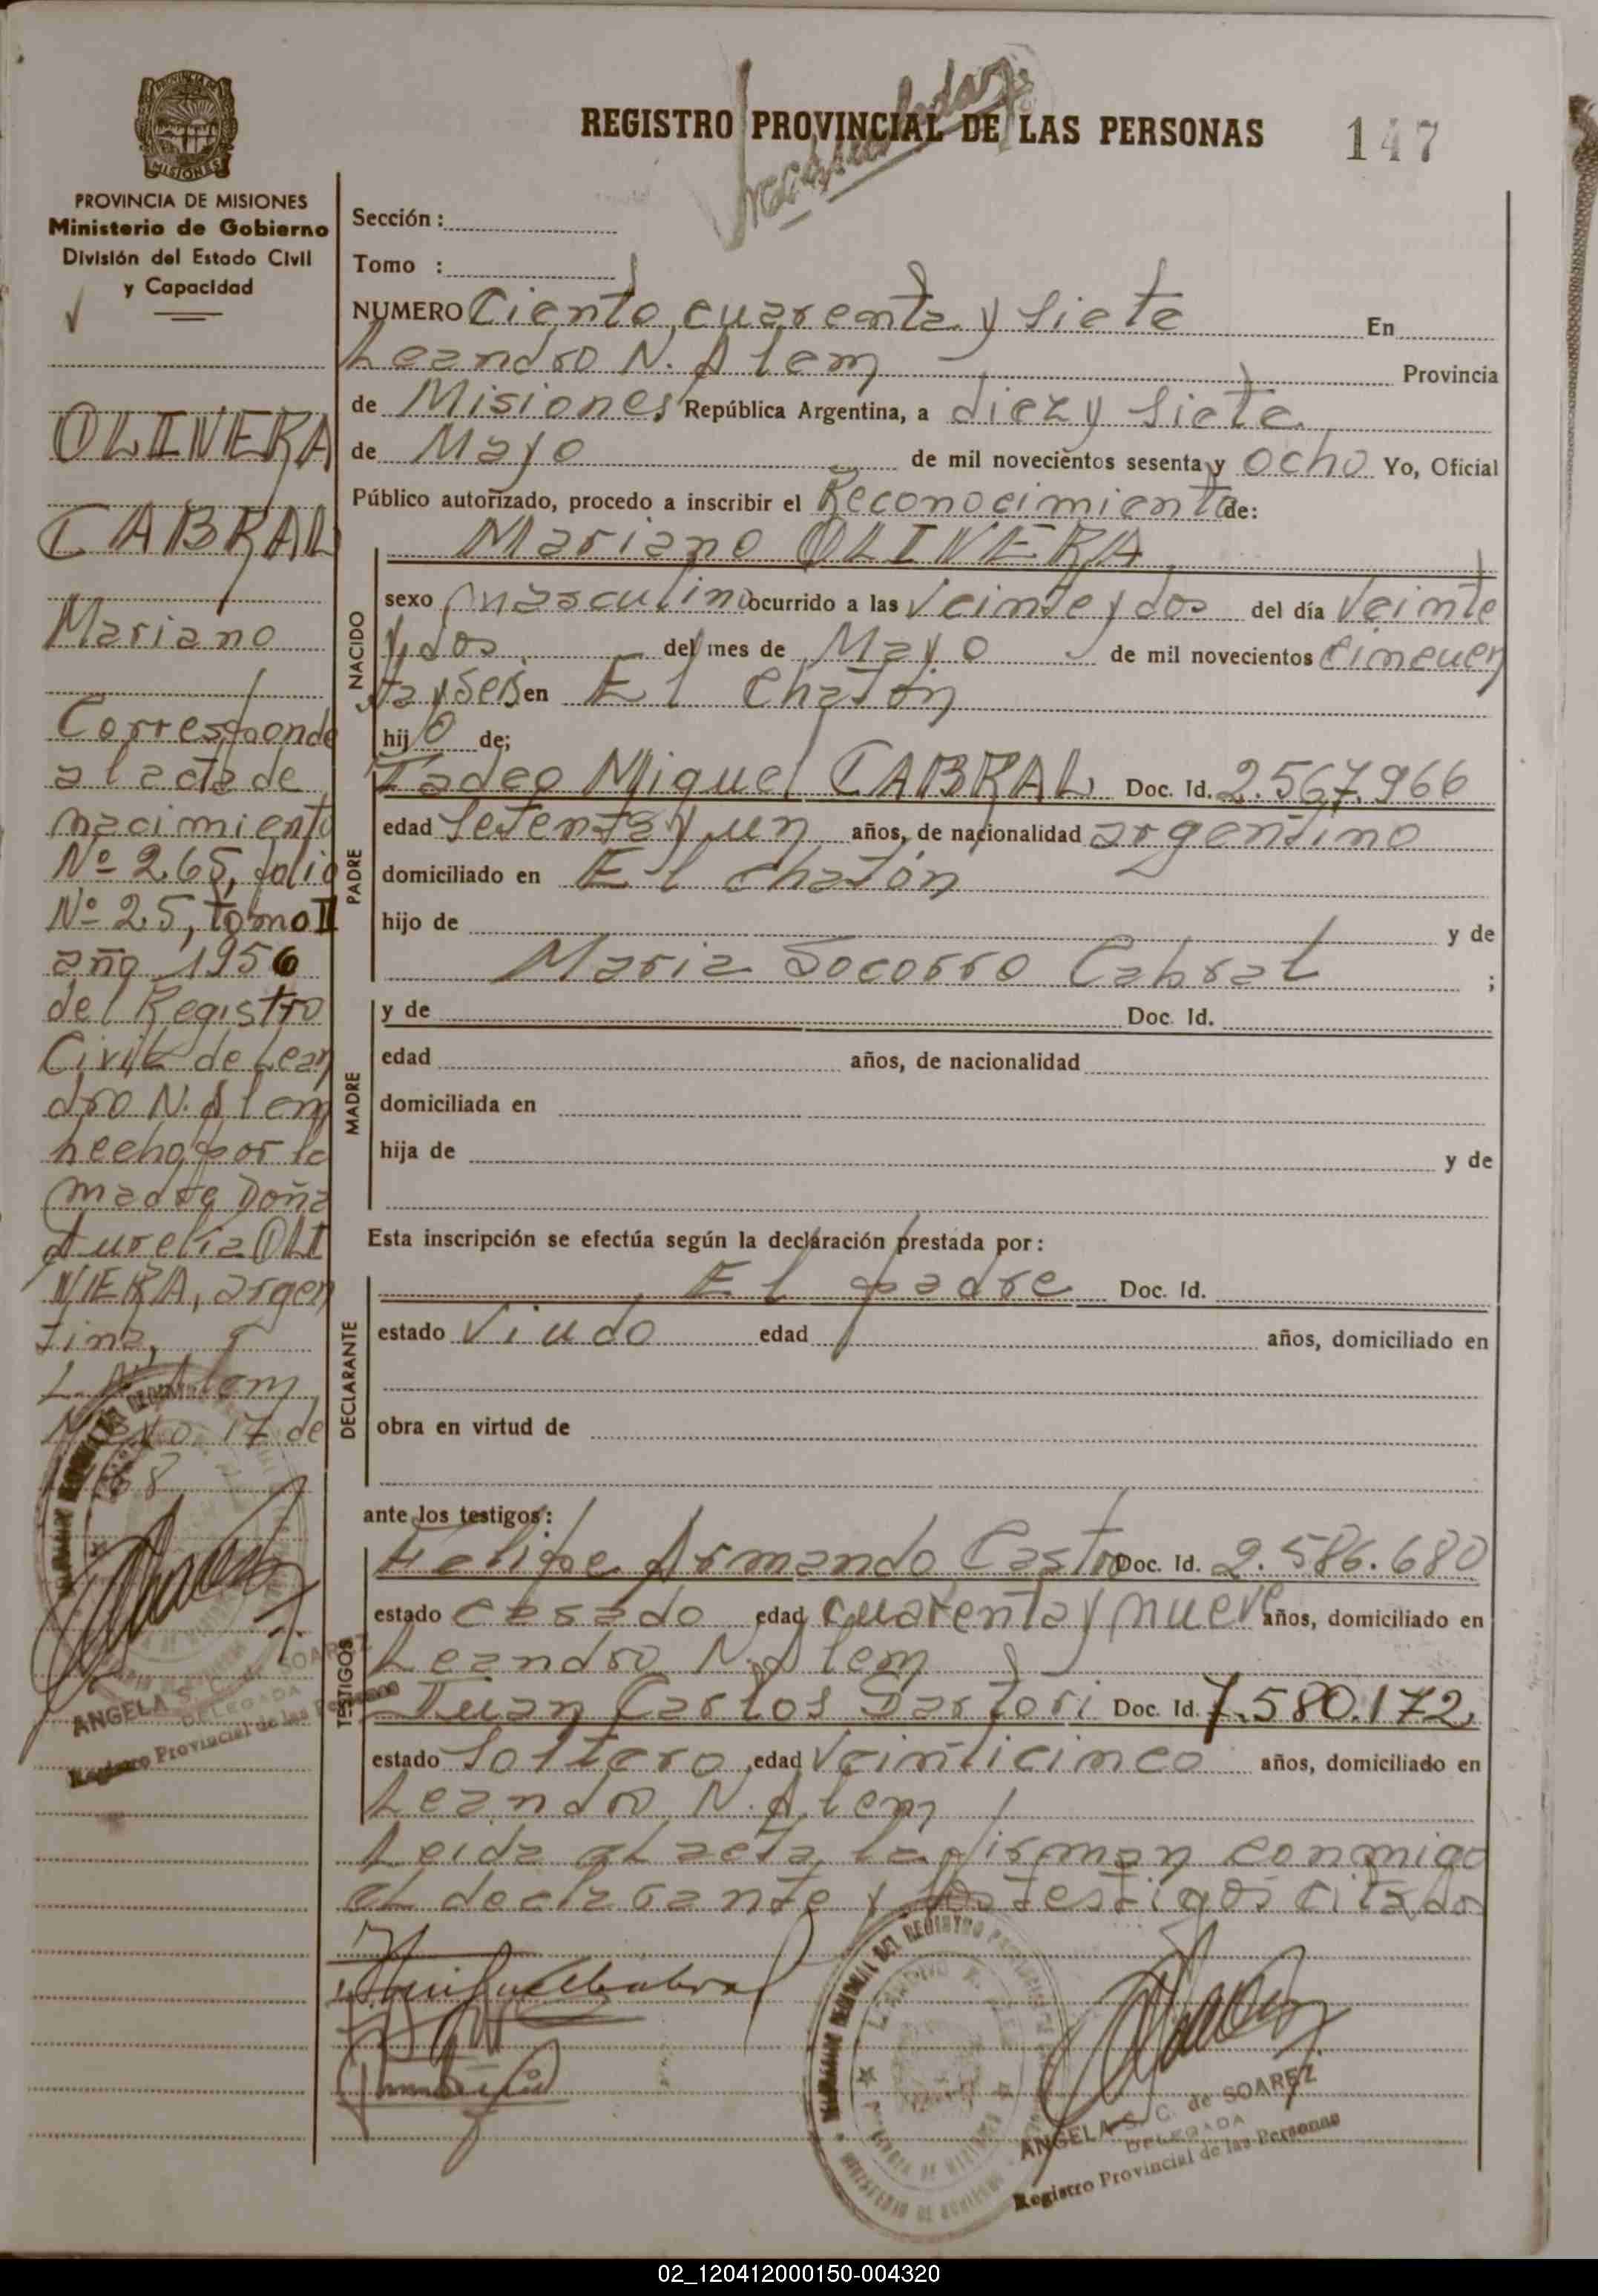 REGISTRO PROVINCIAL DE LAS PERSONAS 147
PROVINCIA DE MISIONES
Ministerio de Gobierno
División del Estado Civil
y Capacidad
OLIVERA
CABRAL
Mariano
Corresponde
al acta de
nacimiento
Nº 265, folio
Nº 25, tomo II
año 1956
del Registro
Civil de Lean
dro N. Alem
hecho por la
madre Doña
Aurelia OLI
VERA, argen
tina,
L. N. Alem,
Mayo 17 de
68
ANGELA S. C. de SOAREZ
DELEGADA
Registro Provincial de las Personas
Sección :
Tomo :
NUMERO Ciento cuarenta y siete En
Leandro N. Alem Provincia
de Misiones República Argentina, a diez y siete
de Mayo de mil novecientos sesenta y ocho Yo, Oficial
Público autorizado, procedo a inscribir el Reconocimiento de:
Mariano OLIVERA
NACIDO
sexo masculino ocurrido a las veinte y dos del día veinte
y dos del mes de Mayo de mil novecientos cincuen
ta y seis en El Chatón
hijo de;
PADRE
Tadeo Miguel CABRAL Doc. Id. 2.567.966
edad setenta y un años, de nacionalidad argentino
domiciliado en El Chatón
hijo de y de
Maria Socorro Cabral ;
MADRE
y de Doc. Id.
edad años, de nacionalidad
domiciliada en
hija de y de
Esta inscripción se efectúa según la declaración prestada por :
DECLARANTE
El padre Doc. Id.
estado Viudo edad años, domiciliado en
obra en virtud de
ante los testigos :
TESTIGOS
Felipe Armando Castro Doc. Id. 2.586.680
estado casado edad cuarenta y nueve años, domiciliado en
Leandro N. Alem
Juan Carlos Sartori Doc. Id. 7.580.172,
estado soltero edad veinticinco años, domiciliado en
Leandro N. Alem
Leida el acta la firman conmigo
el declarante y los testigos citados
ANGELA S. C. de SOAREZ
DELEGADA
Registro Provincial de las Personas
02_120412000150-004320